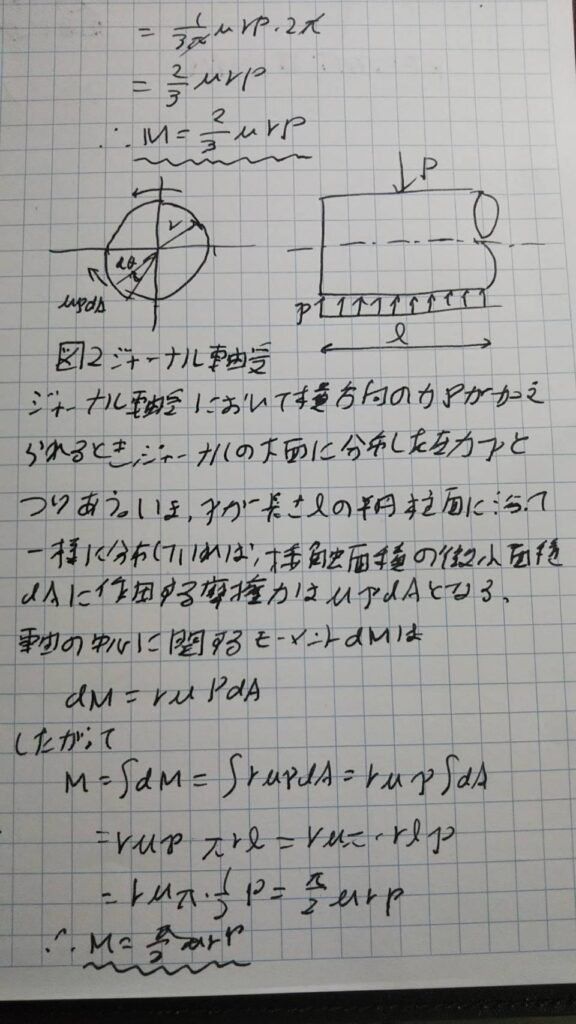 = 1/3π μrP・2π
= 2/3 μrP
∴ M = 2/3 μrP
r
dθ
μpdA
P
p
l
図2 ジャーナル軸受
ジャーナル軸受において横方向の力Pが加え
られるとき、ジャーナルの下面に分布した圧力pと
つりあう。いま、pが長さlの半円柱面に沿って
一様に分布していれば、接触面積の微小面積
dAに作用する摩擦力はμpdAとなる。
軸の中心に関するモーメントdMは
dM = rμpdA
したがって
M = ∫dM = ∫rμpdA = rμp∫dA
= rμp πrl = rμπ・rlp
= rμπ・1/2 P = π/2 μrP
∴ M = π/2 μrP